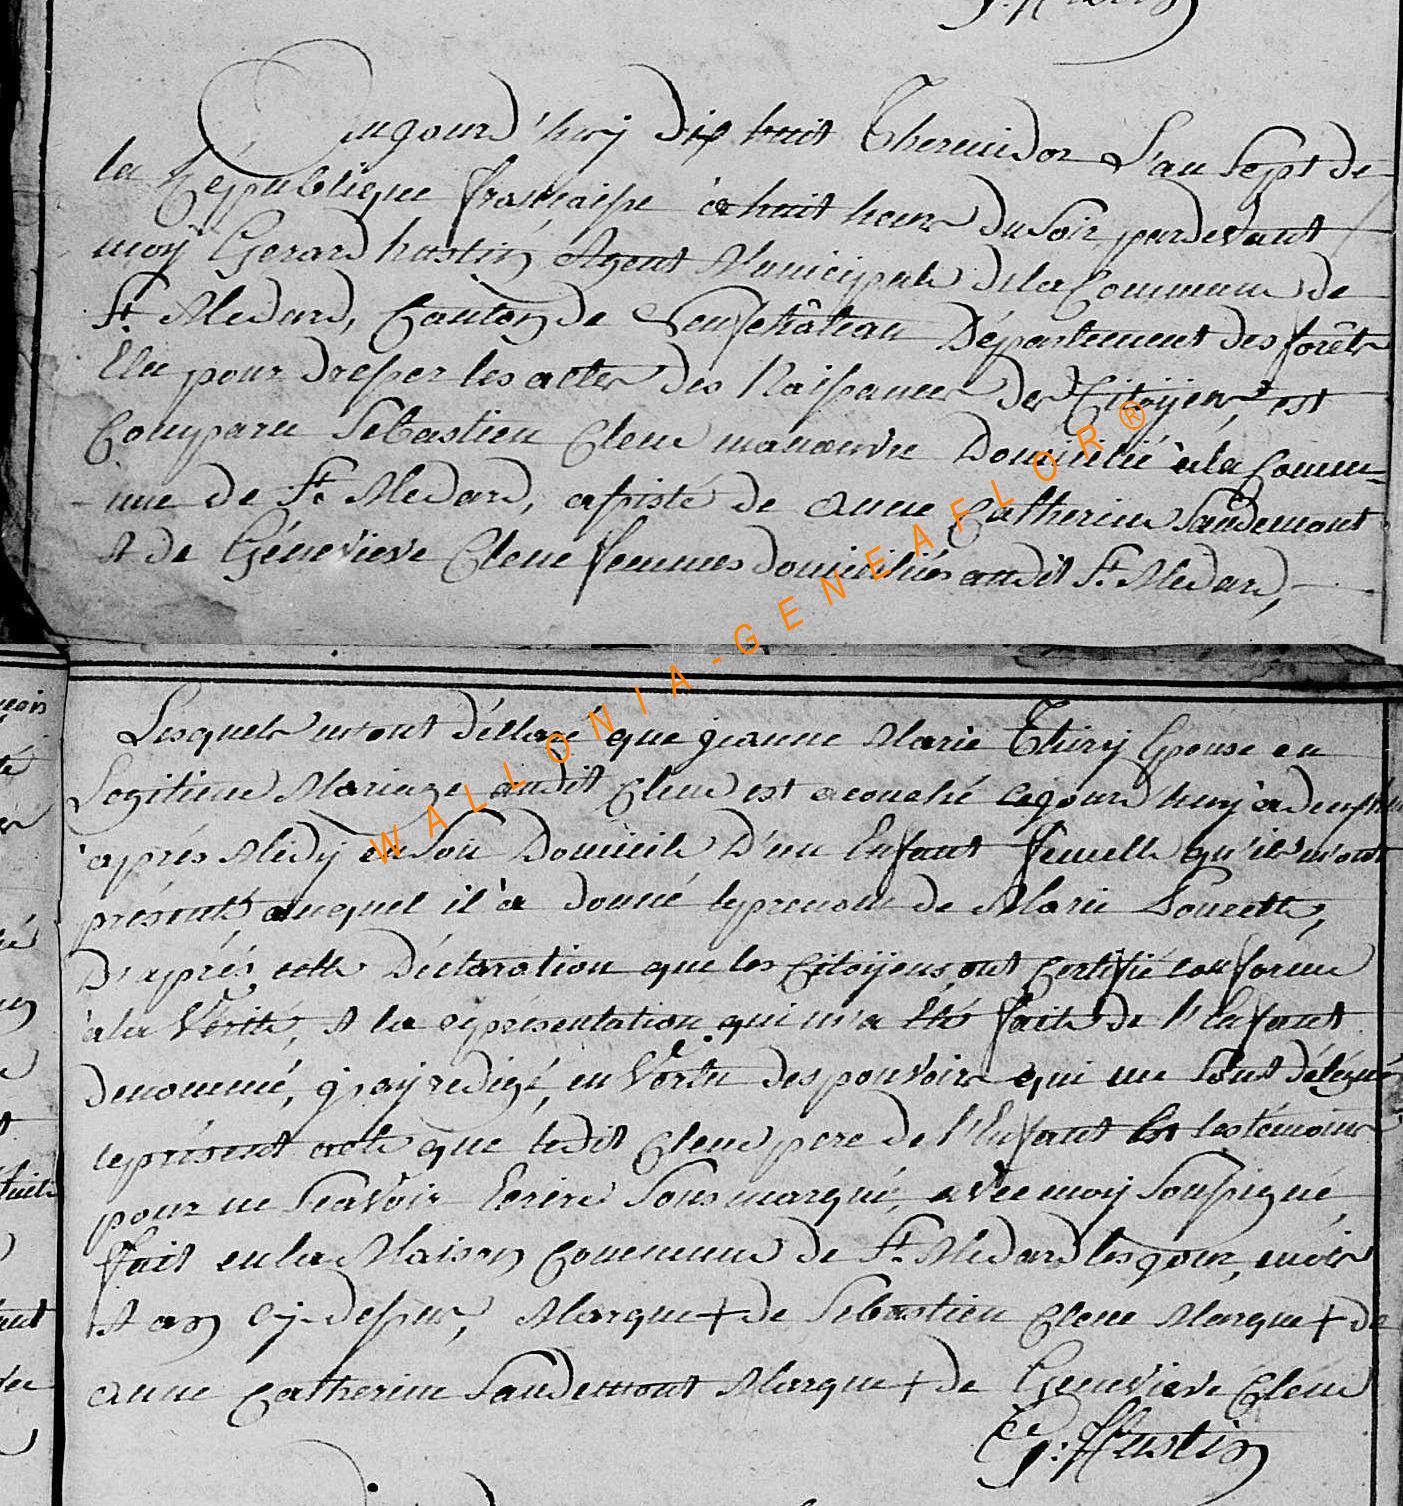 Aujourd'huy dix huit Thermidor L'an Sept de
la République française à huit heures du Soir pardevant
moy Gerard hustin Agent Municipale de la Commune de
St. Medard, Canton de Neufchâteau Département des forêts
Elu pour dresser les actes des Naissances des Citoÿens, est
Comparu Sebastien Clene manœuvre Domicilié à la Commu-
-nne de St. Medard, assisté de anne Catherine Sandemont
& de Généviéve Clene femmes domiciliées audit St. Medard,
WALLONIA-GENEAFLOR®
Lesquels m'ont déllaré que jeanne Marie Thiry Epouse en
Legitime Mariage audit Clene est acouché cejourd'huy à deux
après Medy en Son Domicile D'un Enfant femelle qu'ils m'ont
présenté, auquel il à donné le prenom de Marie Poncette,
D'après cette Déclaration que les Citoÿens ont Certifié conforme
à la Vérité, & la représentation qui m'a été faite de l'Enfant
denommé, j'ay redigé, en Vertu des pouvoirs qui me Sont délégués
le présent acte que ledit Clene pere de l'Enfant Et les témoins
pour ne Scavoir Ecrire Sous marqué, avec moy Soussigné,
fait en la Maison Commune de St. Medard les jour, mois
& an Cy-dessus, Marque + de Sebastien Clene Marque + de
anne Catherine Sandemont Marque + de Genevieve Clene
G: Hustin